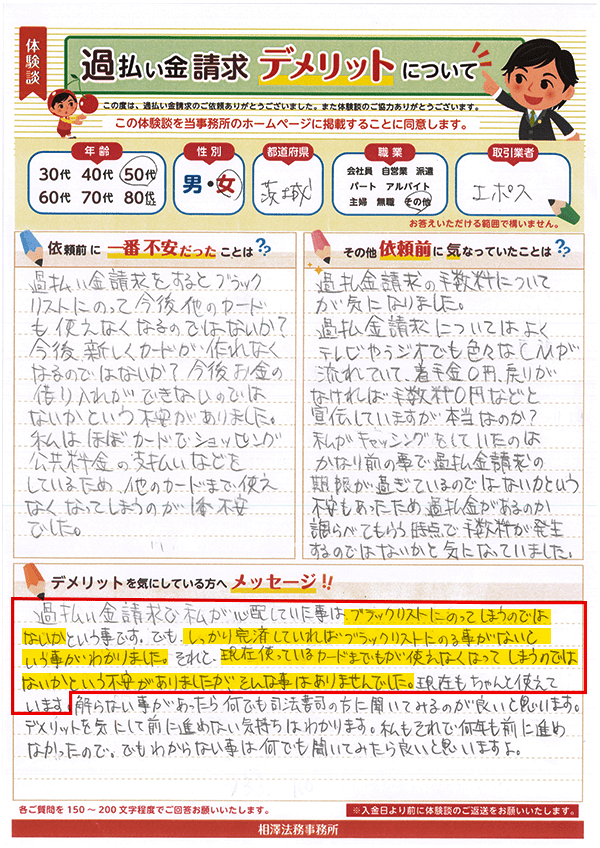 体験談
過払い金請求 デメリットについて
この度は、過払い金請求のご依頼ありがとうございました。また体験談のご協力ありがとうございます。
この体験談を当事務所のホームページに掲載することに同意します。
年齢
30代 40代 50代
60代 70代 80代以上
性別
男・女
都道府県
茨城
職業
会社員 自営業 派遣
パート アルバイト
主婦 無職 その他
取引業者
エポス
お答えいただける範囲で構いません。
依頼前に 一番不安だったことは??
過払い金請求をするとブラック
リストにのって今後他のカード
も使えなくなるのではないか?
今後新しくカードが作れなく
なるのではないか?今後お金の
借り入れができないのでは
ないかという不安がありました。
私はほぼカードでショッピングや
公共料金の支払いなどを
しているため、他のカードまで使え
なくなってしまうのが1番不安
でした。
その他 依頼前に気なっていたことは??
過払金請求の手数料について
が気になりました。
過払金請求についてはよく
テレビやラジオでも色々なCMが
流れていて、着手金0円、戻りが
なければ手数料0円などと
宣伝していますが本当なのか?
私がキャッシングをしていたのは
かなり前の事で過払金請求の
期限が過ぎているのではないかという
不安もあったため、過払金があるのか
調らべてもらう時点で手数料が発生
するのではないかと気になっていました。
デメリットを気にしている方へ メッセージ!!
過払い金請求で私が心配していた事は、ブラックリストにのってしまうのでは
ないかという事です。でも、しっかり完済していればブラックリストにのる事がないと
いう事がわかりました。それと、現在使っているカードまでもが使えなくなってしまうのでは
ないかという不安がありましたがそんな事はありませんでした。現在もちゃんと使えて
います。解らない事があったら何でも司法書司の方に聞いてみるのが良いと思います。
デメリットを気にして前に進めない気持ちはわかります。私もそれで何年も前に進め
なかったので。でもわからない事は何でも聞いてみたら良いと思いますよ。
各ご質問を150~200文字程度でご回答お願いいたします。
※入金日より前に体験談のご返送をお願いいたします。
相澤法務事務所